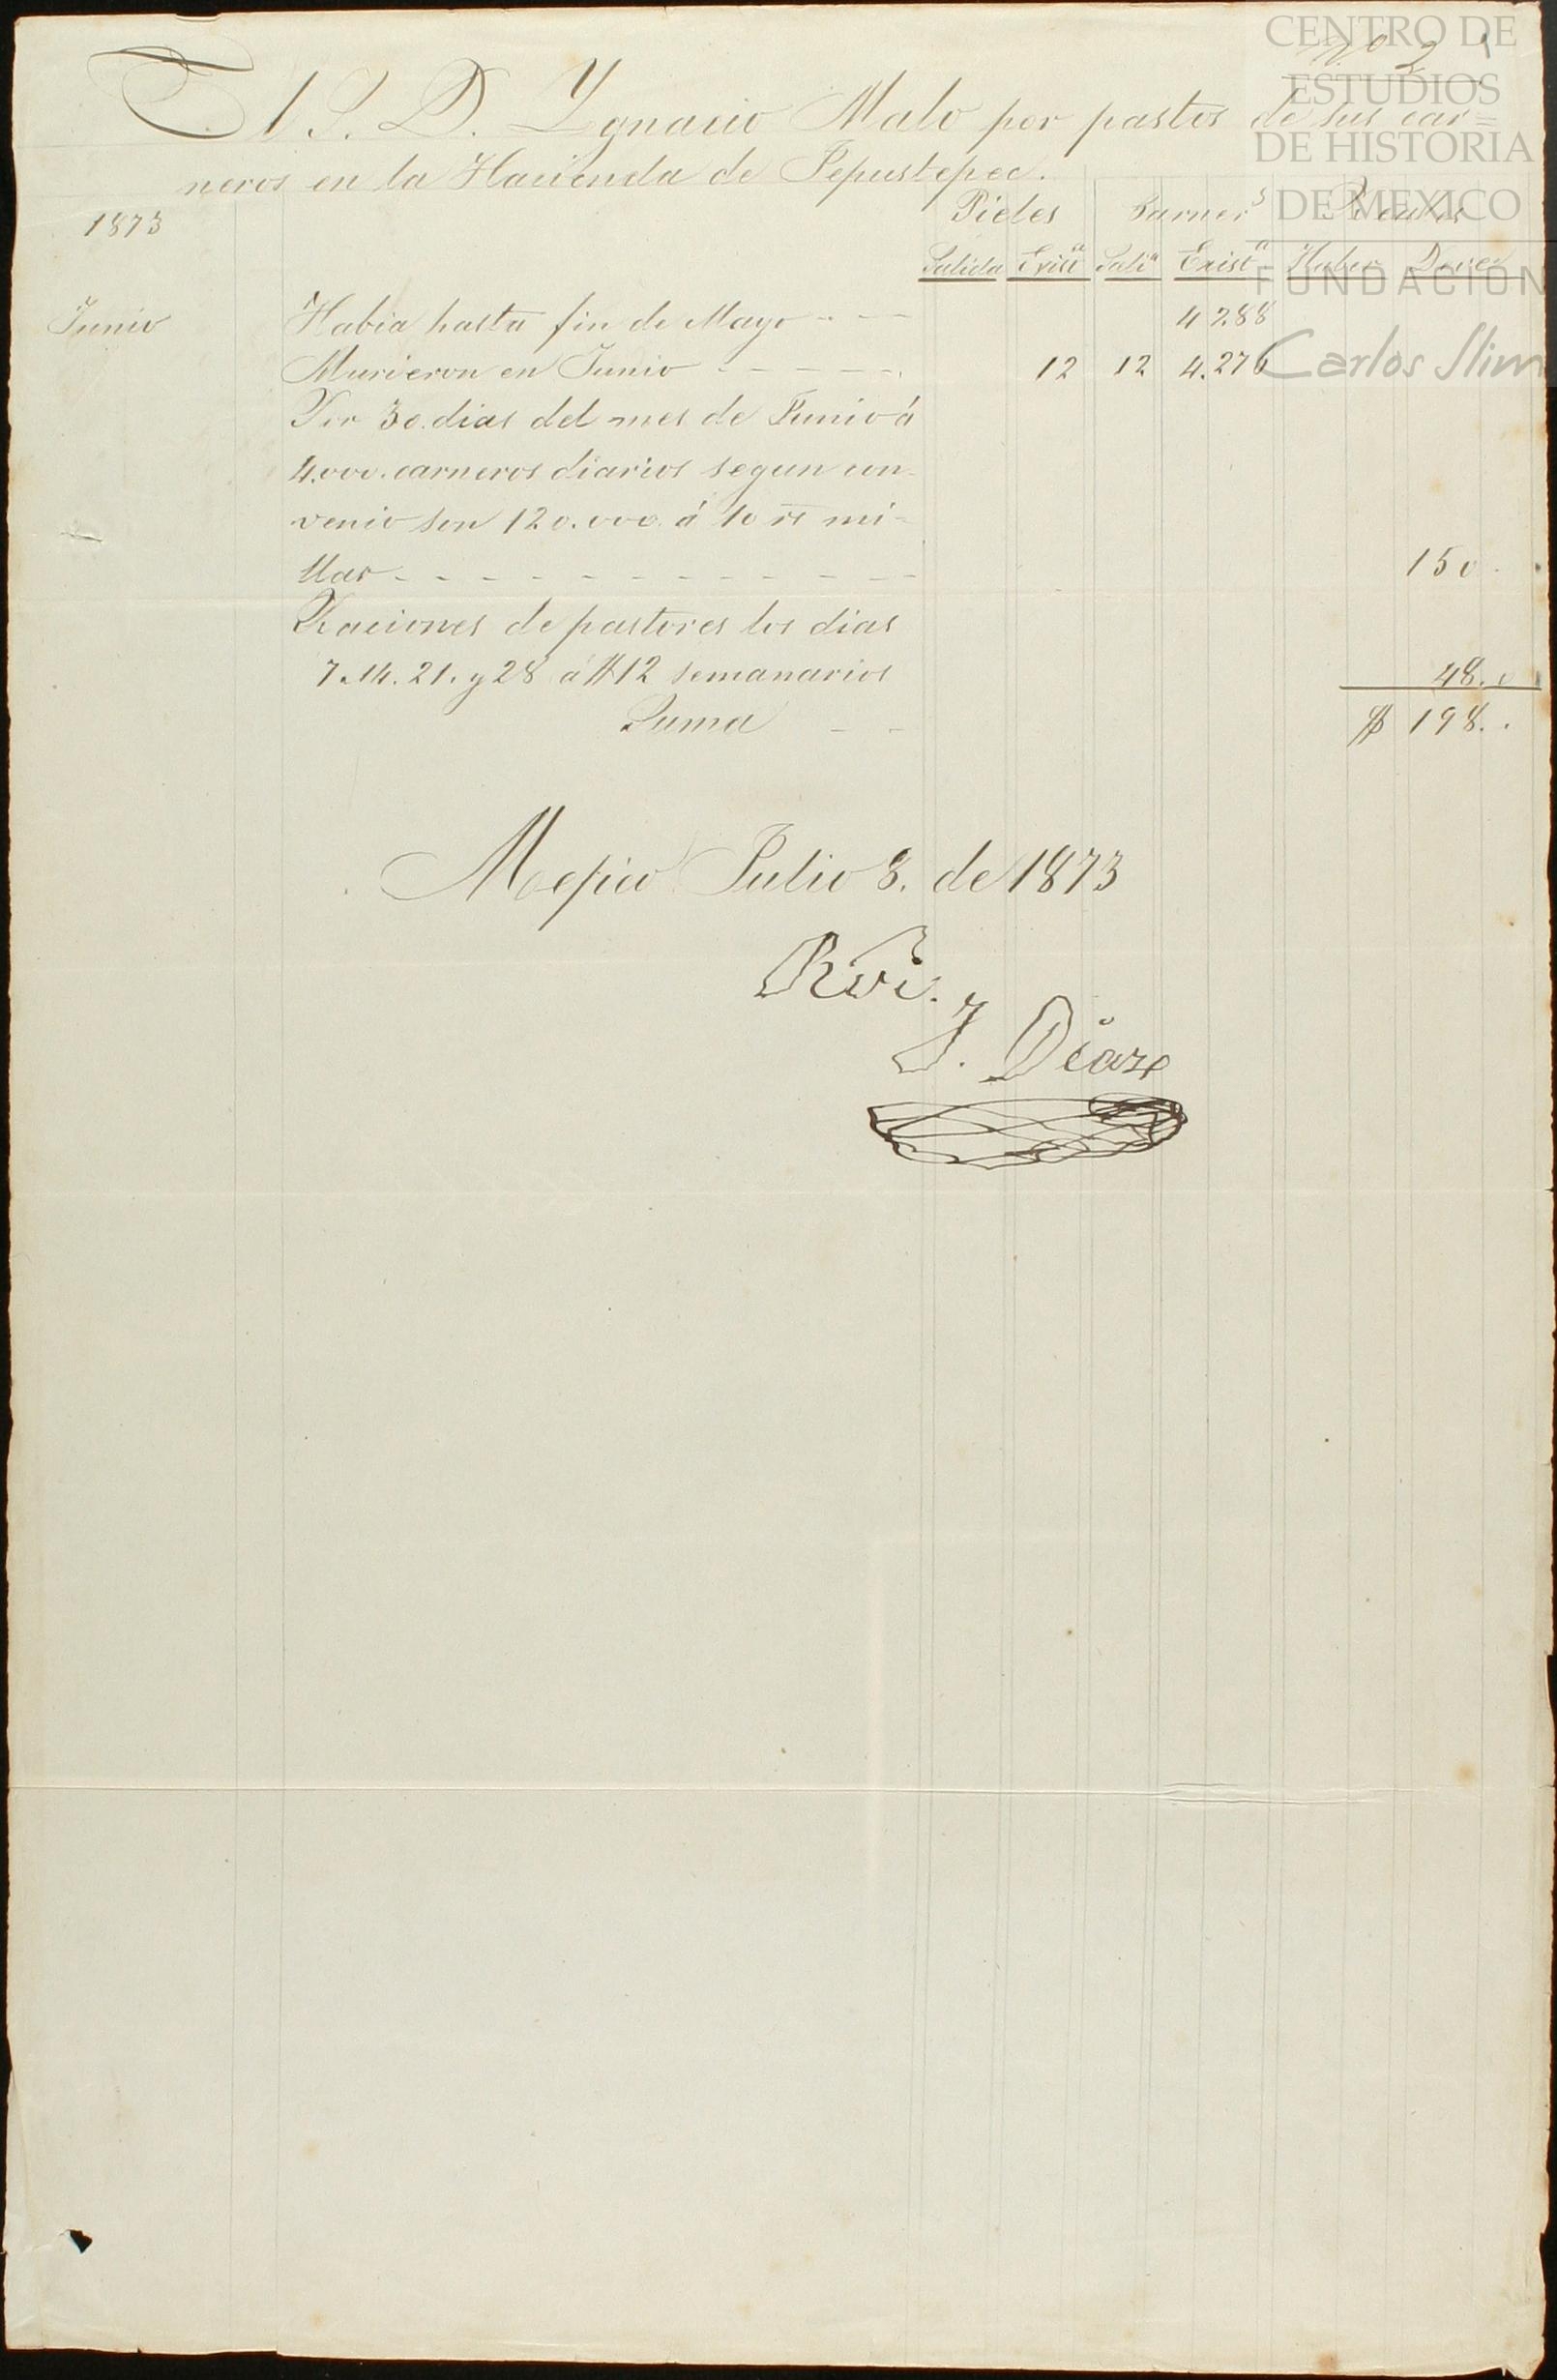 CENTRO DE
ESTUDIOS
DE HISTORIA
DE MEXICO
FUNDACION
Carlos Slim
Nº 2
El S. D. Ygnacio Malo por pastos de sus car=
neros en la Hacienda de Tepustepec.
1873 Pieles Carnerˢ Reales
Salida Existª Saliª Existª Haber Deve
Junio Habia hasta fin de Mayo - - 4288
Murieron en Junio - - - - - 12 12 4.276
Por 30. dias del mes de Junio á
4.000. carneros diarios segun con-
venio son 120.000. á 10 rs mi-
llar - - - - - - - - - - - 150.
Raciones de pastores los dias
7. 14. 21. y 28 á $12 semanarios 48. 0
Suma - - $ 198. .
Mexico Julio 8. de 1873
Rví.
J. Diaz